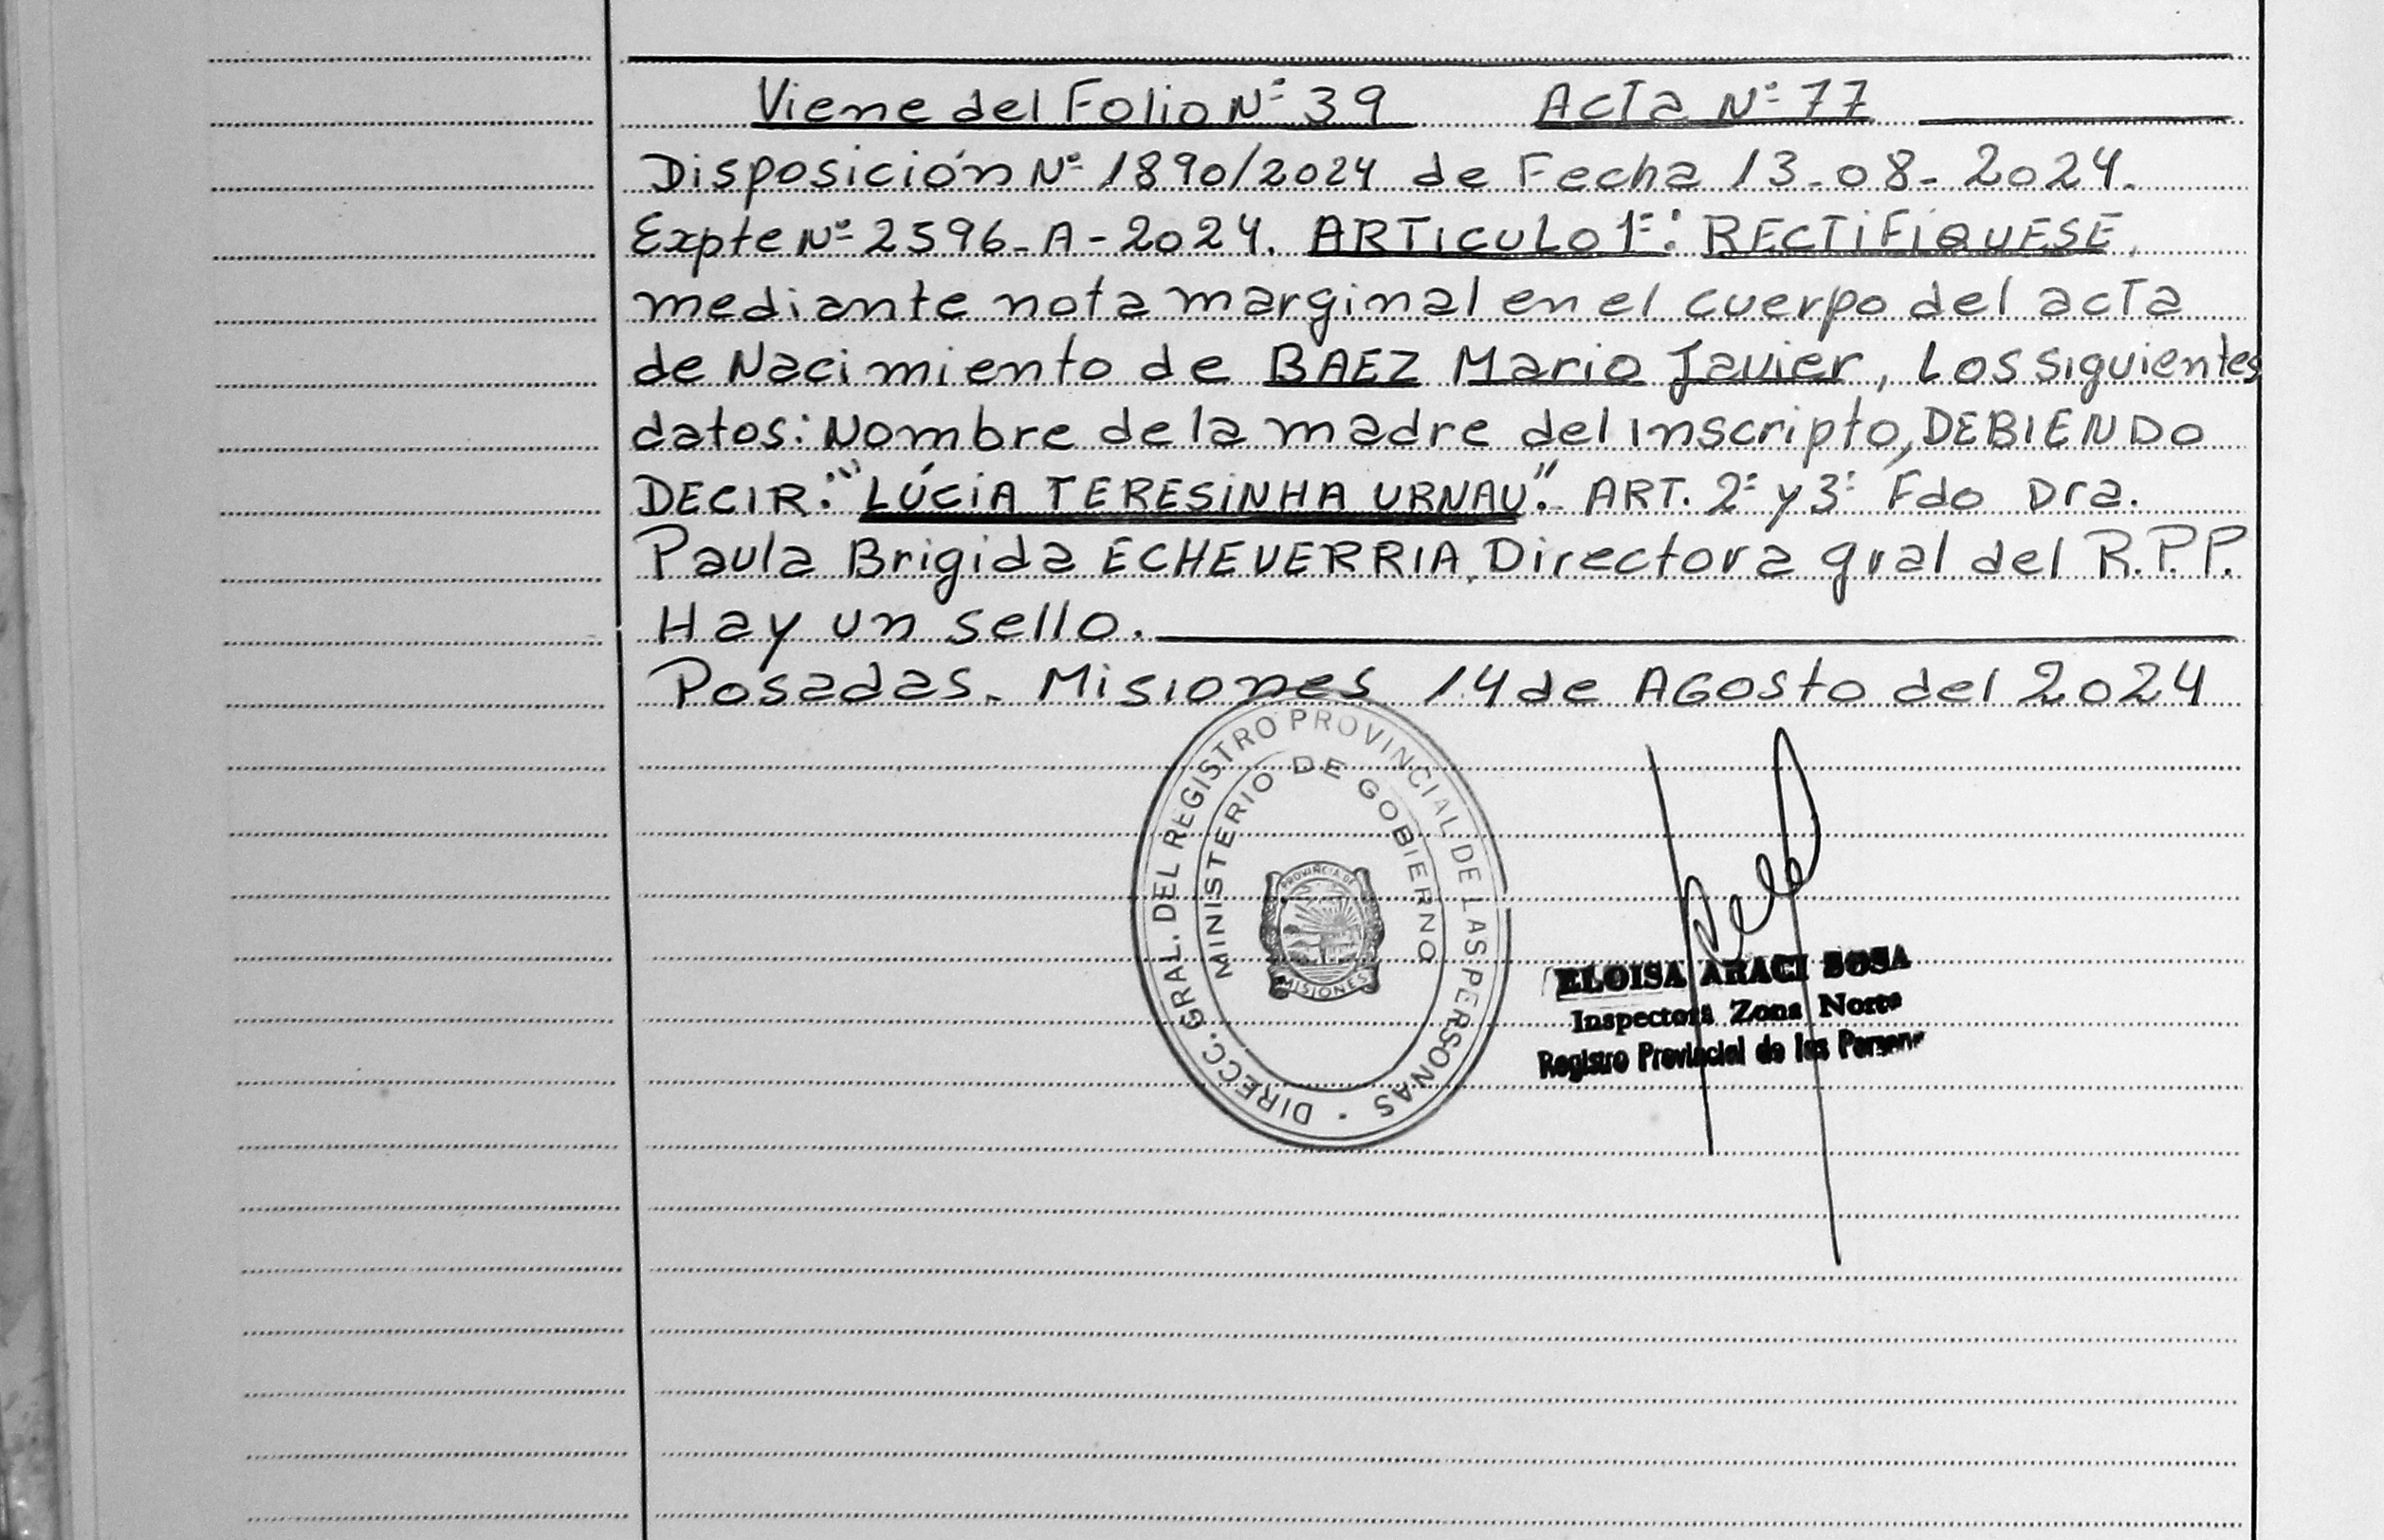 Viene del Folio Nº 39 Acta Nº 77
Disposición Nº 1890/2024 de Fecha 13-08-2024.
Expte Nº 2596-A-2024. ARTICULO 1º: RECTIFIQUESE,
mediante nota marginal en el cuerpo del acta
de Nacimiento de BAEZ Mario Javier, Los siguientes
datos: Nombre de la madre del inscripto, DEBIENDO
DECIR: "LÚCIA TERESINHA URNAU". ART. 2º y 3º Fdo Dra.
Paula Brigida ECHEVERRIA, Directora gral del R.P.P.
Hay un sello.
Posadas. Misiones 14 de AGosto del 2024
DIRECC. GRAL. DEL REGISTRO PROVINCIAL DE LAS PERSONAS
MINISTERIO DE GOBIERNO
PROVINCIA DE
MISIONES
ELOISA ARACI SOSA
Inspectora Zona Norte
Registro Provincial de las Persona